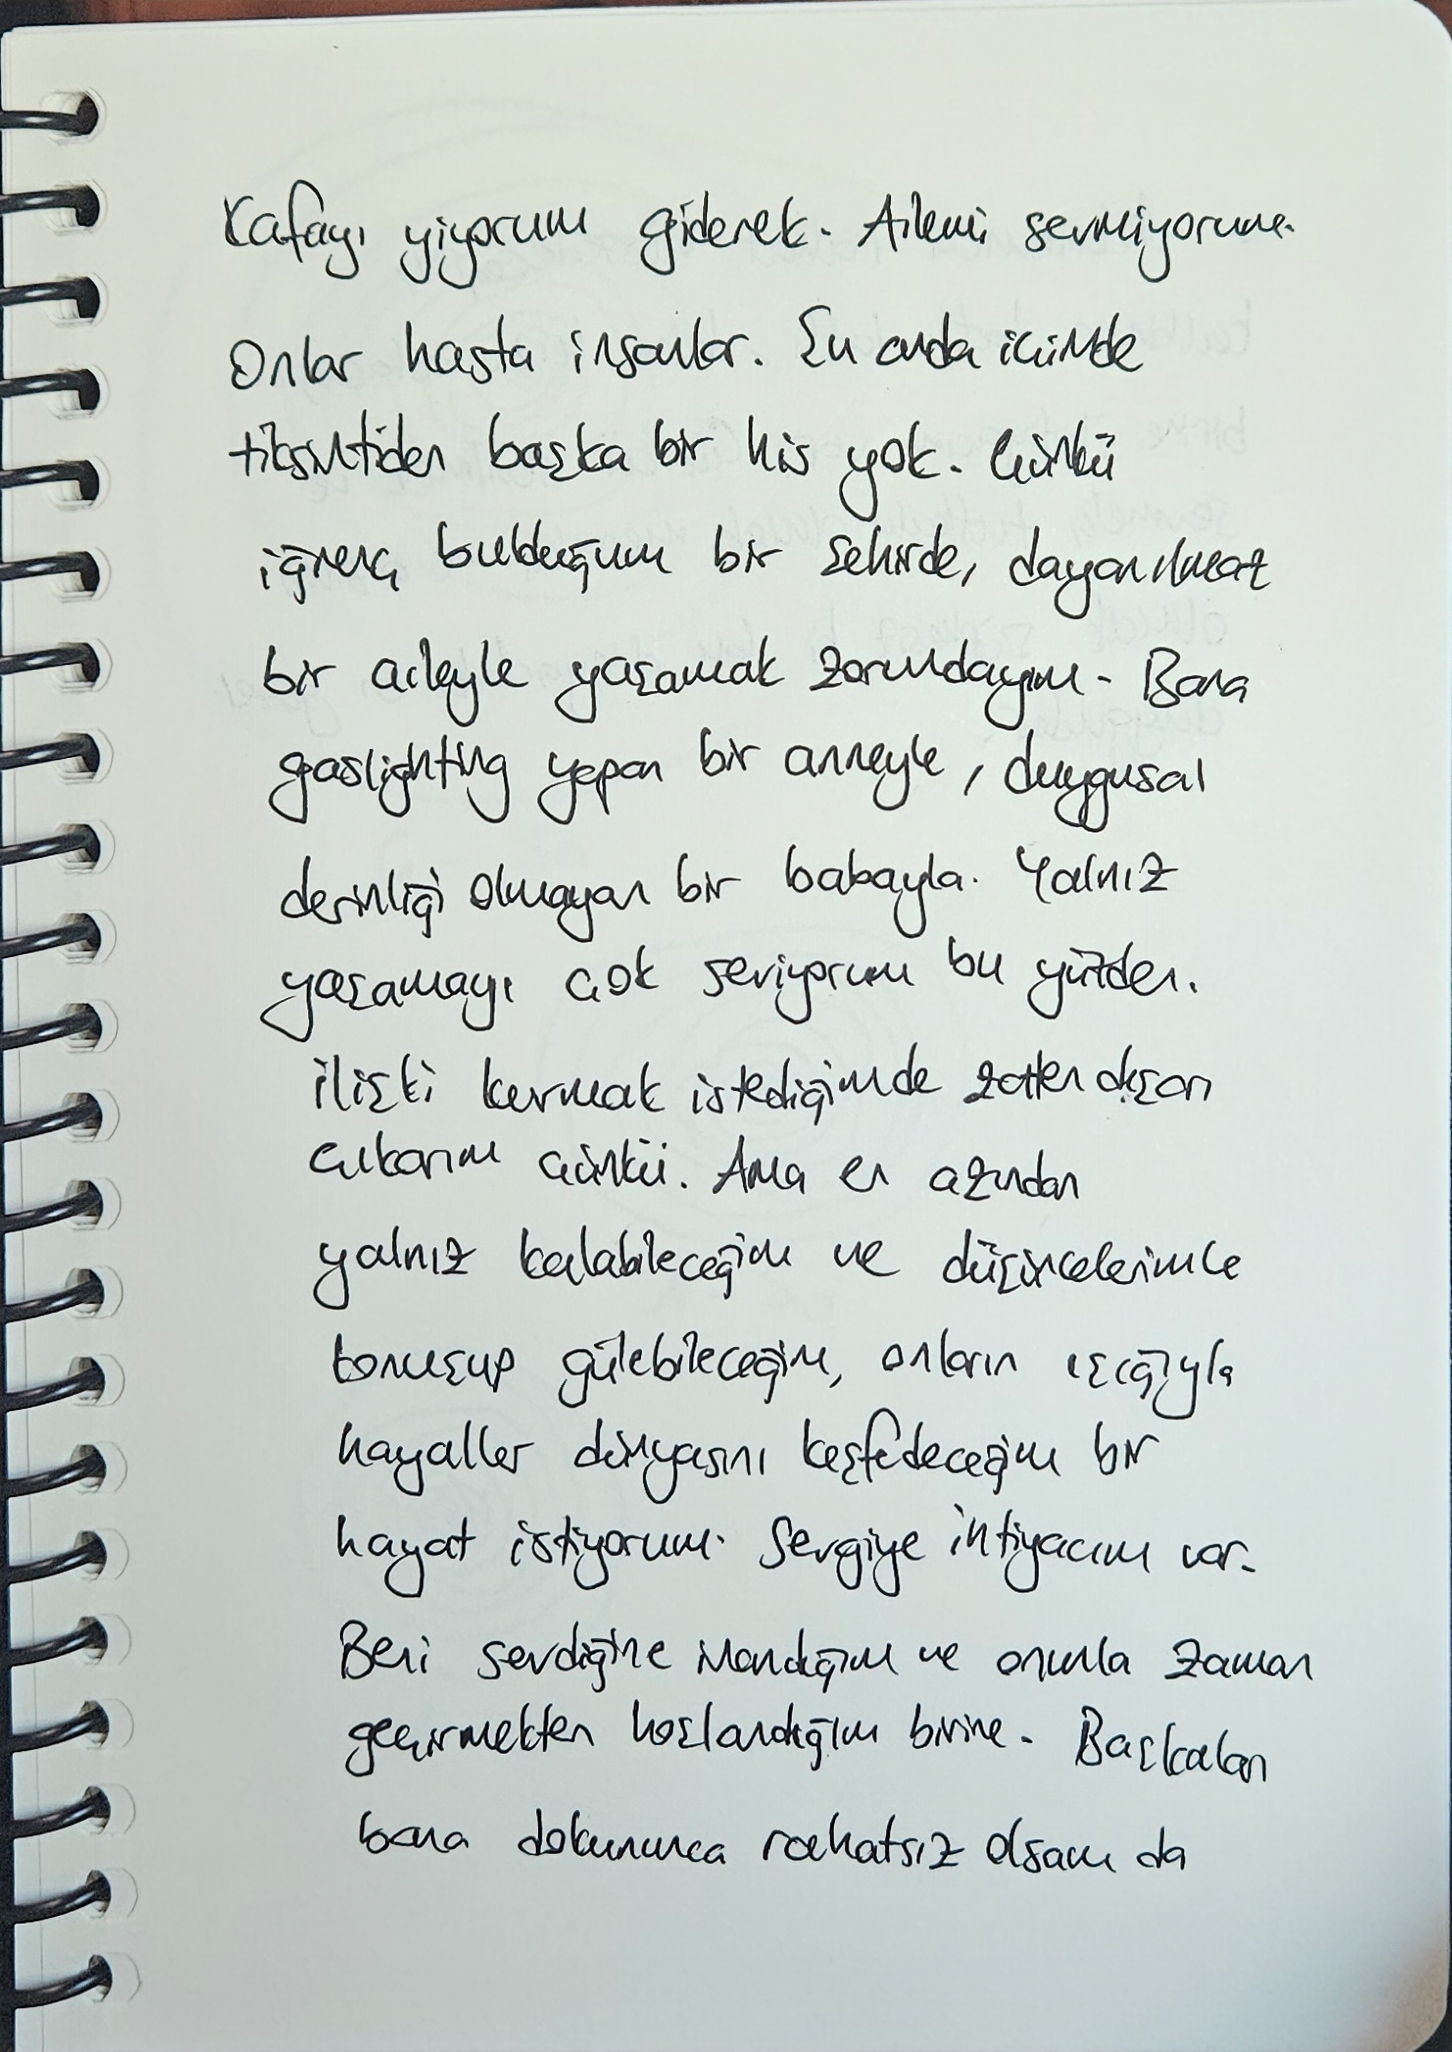 Kafayı yiyorum giderek. Ailemi sevmiyorum.
Onlar hasta insanlar. Şu anda içimde
tiksintiden başka bir his yok. Çünkü
iğrenç bulduğum bir şehirde, dayanılmaz
bir aileyle yaşamak zorundayım. Bana
gaslighting yapan bir anneyle, duygusal
derinliği olmayan bir babayla. Yalnız
yaşamayı çok seviyorum bu yüzden.
İlişki kurmak istediğimde zaten dışarı
çıkarım çünkü. Ama en azından
yalnız kalabileceğim ve düşüncelerimle
konuşup gülebileceğim, onların ışığıyla
hayaller dünyasını keşfedeceğim bir
hayat istiyorum. Sevgiye ihtiyacım var.
Beni sevdiğine inandığım ve onunla zaman
geçirmekten hoşlandığım birine. Başkaları
bana dokununca rahatsız olsam da